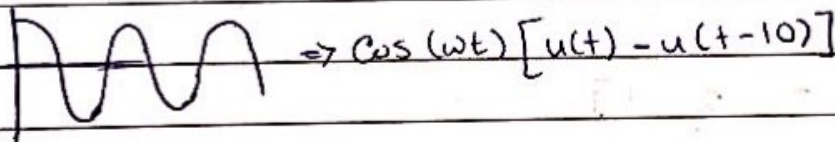 => Cos (wt) [u(t) - u(t-10)]